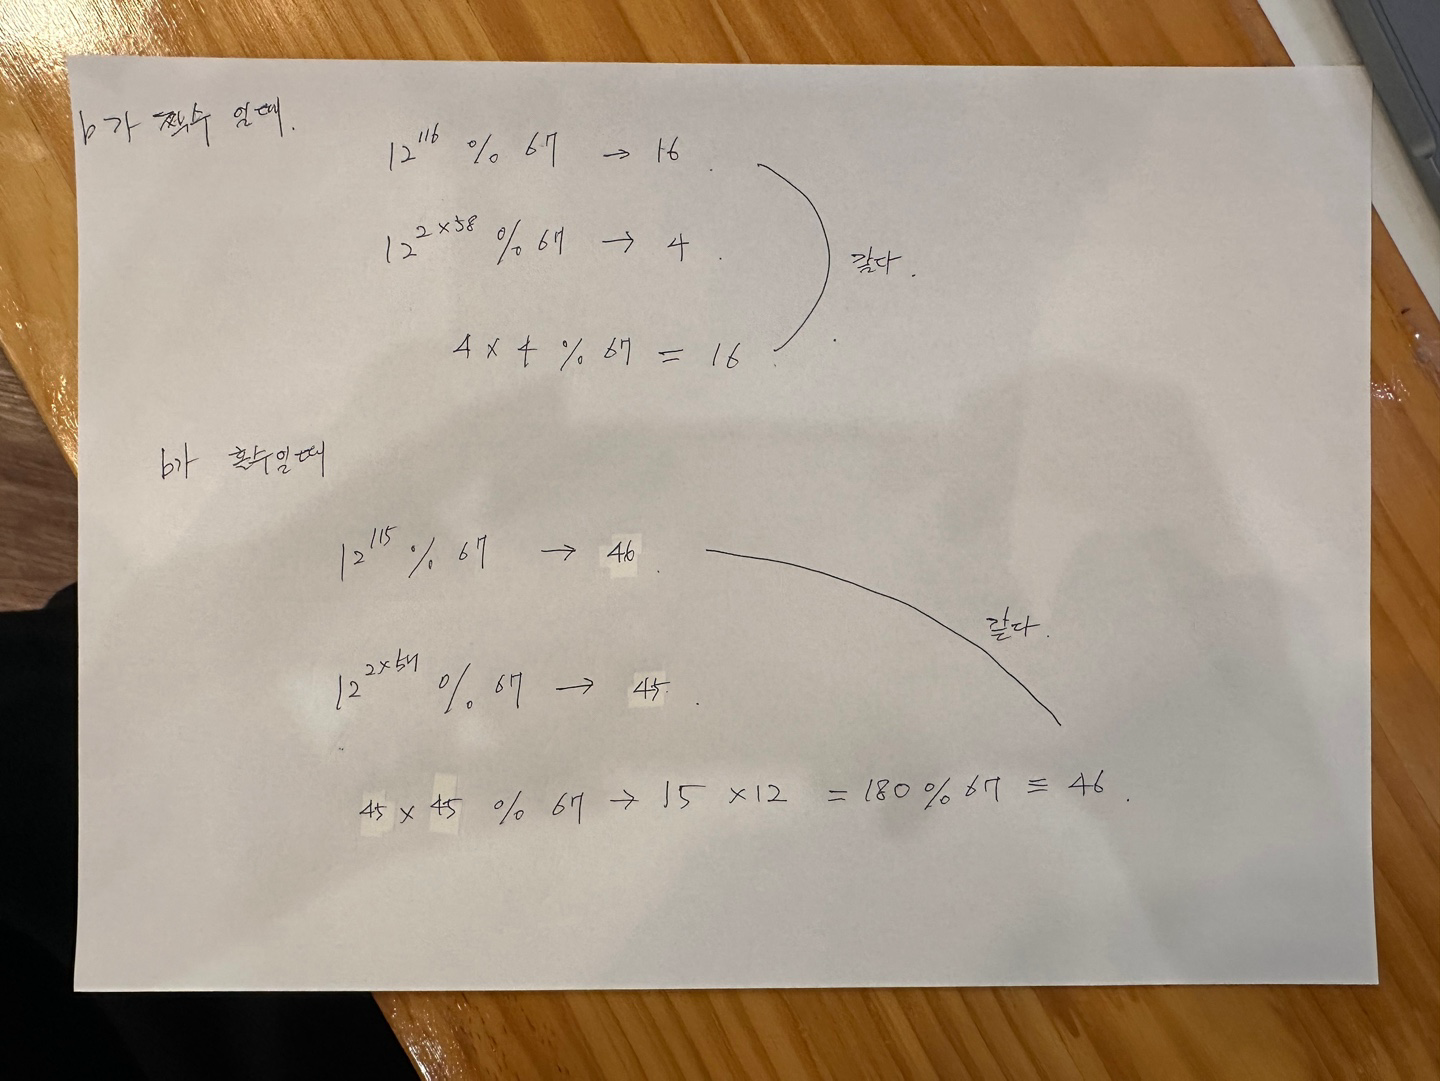 b가 짝수 일때.
12^116 % 67 → 16
12^2×58 % 67 → 4
같다.
4 × 4 % 67 = 16
b가 홀수일때
12^115 % 67 → 46
같다.
12^2×57 % 67 → 45
45 × 45 % 67 → 15 × 12 = 180 % 67 ≡ 46